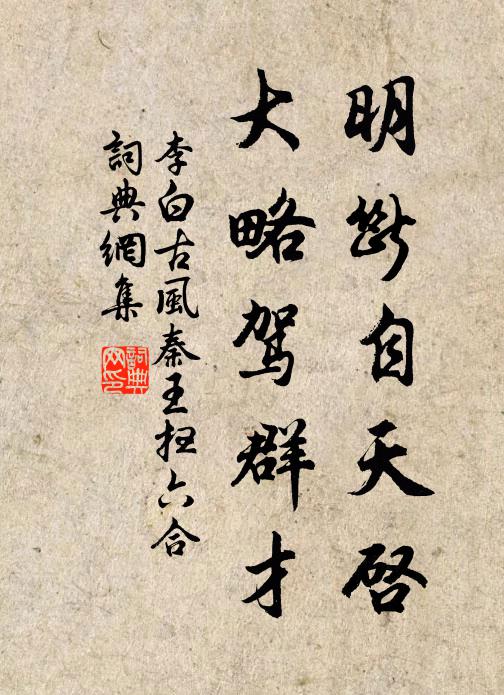 明斷自天啓
大略駕群才
李白古風秦王掃六合
詞典網集
詞典網印